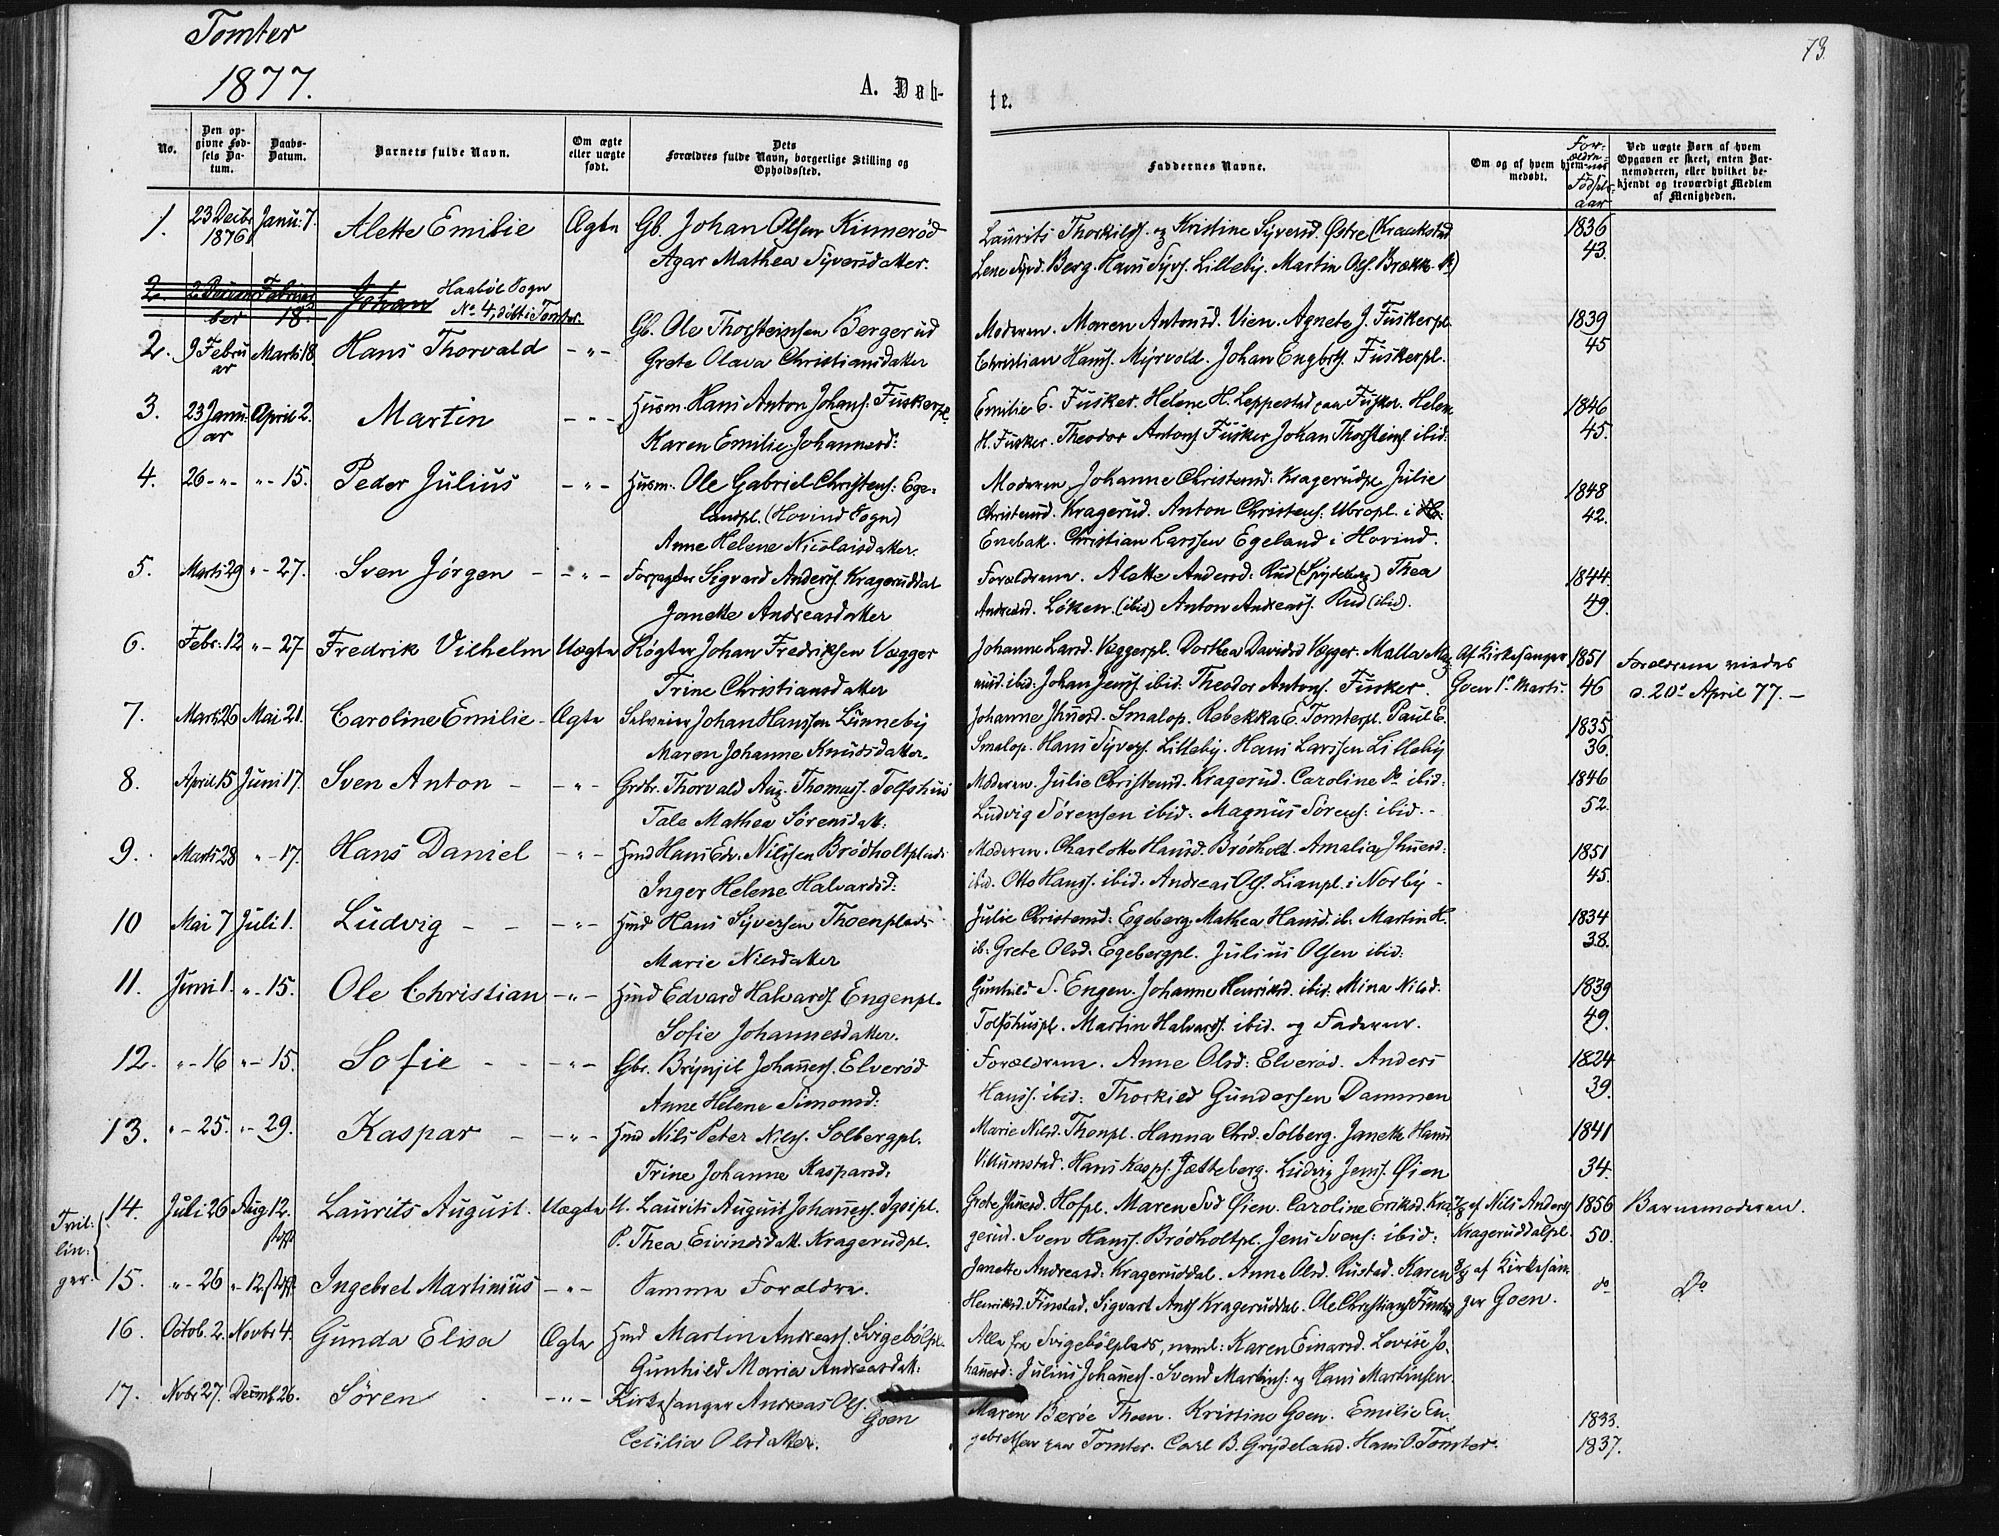 Tomter
1877.
73.
A. Døb-
te.
No.
Den opgivne Fødsels Datum.
Daabs-Datum.
Barnets fulde Navn.
Om ægte eller uægte født.
Dets Forældres fulde Navn, borgerlige Stilling og Opholdssted.
Faddernes Navne.
Om og af hvem hjemmedøbt.
Forældrenes Fødselsaar
Ved uægte Børn af hvem Opgaven er skeet, enten Barnemoderen, eller hvilket bekjendt og troværdigt Medlem af Menigheden.
1. 23 Decbr 1876 Janu: 7. Alette Emilie Ægte Gb. Johan Olsen Kinnerød
Agar Mathea Syversdatter.
Laurits Thorkilds. og Kristine Syversd. Østre (Kraakstad
Lene Syvd. Berg. Hans Syvs. Lilleby. Martin Ols. Brække
1836
43.
2. 2 December Februar 18. Johan Haabøl Sogn
No 4, døbt i Tomter.
2. 9 Februar Marts 18. Hans Thorvald -"- Gb. Ole Thorsteinsen Bergerud
Grete Olava Christiansdatter
Moderen. Maren Antonsd. Vien. Agnete J. Fuskerpl.
Christian Hanss. Myrvold. Johan Engbrts. Fuskerpl.
1839
45
3. 23 Januar April 2. Martin -"- Husm. Hans Anton Johans. Fuskerpl.
Karen Emilie Johannesd:
Emilie E. Fusker. Helene H. Leppestad paa Fusker. Helene
H. Fusker. Theodor Antons. Fusker Johan Thorsteins. ibid:
1846
45.
4. 26 -"- "- 15. Peder Julius -"- Husm: Ole Gabriel Christens: Ege-
landpl. (Hovind Sogn)
Anne Helene Nicolaisdatter.
Moderen Johanne Christensd: Kragerudpl. Julie
Christensd. Kragerud. Anton Christens: Ubropl. i
Enebak. Christian Larssen Egeland i Hovind.
1848
42.
5. Marts 29 "- 27. Sven Jørgen -"- Forpagter Sigvard Anderss. Krageruddal
Janette Andreasdatter
Forældrene. Alette Andersd: Rud (Spydeberg) Thea
Andreasd. Løken. (ibid) Anton Andreass. Rud (ibid).
1844.
49.
6. Febr: 12 "- 27 Fredrik Vilhelm Uægte Røgter Johan Fredriksen Vægger
Trine Christiansdatter
Johanne Larsd. Væggerpl. Dorthea Davidsd Vægger. Malla Mag-
nusd. ibid: Johan Jenss. ibid. Theodor Antons. Fusker.
Af Kirkesanger
Goen 1ste Marts.
1851
46
Forældrene viedes
d. 20de April 77. -
7. Marts 26 Mai 21. Caroline Emilie - Ægte Selveier Johan Hanssen Lunneby
Maren Johanne Knudsdatter.
Johanne Jhnesd. Smalop. Rebekka E. Tomterpl. Paul E.
Smalop. Hans Syvers. Lilleby. Hans Larssen Lilleby
1835
36.
8. April 15 Juni 17. Sven Anton - -"- Grdbr. Thorvald Aug. Thomass. Tolfshus
Tale Mathea Sørensdatt:
Moderen. Julie Christensd. Kragerud. Caroline Do ibid:
Ludvig Sørensen ibid: Magnus Sørens: ibid. -
1846
52.
9. Marts 28 "- 17. Hans Daniel -"- Hmd Hans Edv. Nilssen Brødholtplads.
Inger Helene Halvardsd:
Moderen. Charlotte Hansd. Brødholt. Amalia Jhnesd:
ibid. Otto Hanss. ibid. Andreas Ols. Lianpl. i Norby -
1851
45.
10 Mai 7 Juli 1. Ludvig - - -"- Hmd Hans Syversen Thoenplads
Marie Nilsdatter
Julie Christensd: Egeberg. Mathea Hansd. ib. Martin H.
ib. Grete Olsd. Egebergpl. Julius Olsen ibid:
1834
38.
11. Juni 1. "- 15. Ole Christian -"- Hmd Edvard Halvards. Engenpl.
Sofie Johannesdatter.
Gunhild S. Engen. Johanne Henriksd. ibid. Mina Nilsd.
Tolfshuspl. Martin Halvards. ibid. og Faderen.
1839
49.
12. "- 16 "- 15. Sofie - - -"- Gbr. Brynjil Johaness. Elverød
Anne Helene Simonsd:
Forældrene. Anne Olsd: Elverød. Anders
Hanss. ibid: Thorkild Gundersen Dammen
1824
39.
13. "- 25. "- 29. Kaspar - -"- Hmd Nils Peter Nilss. Solbergpl.
Trine Johanne Kaspersd:
Marie Nilsd. Thonpl. Hanna Chrd. Solberg. Janette Hans
Villumstad. Hans Kasps. Jætteberg. Ludvig Jenss. Øien
1841
34.
Tvil-
lin-
ger.
14. Juli 26 Aug 12. Laurits August. Uægte U. Laurits August Johaness. Igsipl.
P. Thea Eivindsdatt. Kragerudpl.
Grete Jhnesd. Hofpl. Maren Svd Øien. Caroline Eriksd. Kra-
gerud. Sven Hanss. Brødholtpl. Jens Svens: ibid:
af Nils Anders.
Krageruddalpl.
1856
50.
Barnemoderen.
15. "- 26 "- 12. Ingebret Martinius -"- Samme Forældre.
Janette Andreasd: Krageruddal. Anne Olsd. Rustad. Karen
Henriksd. Finstad. Sigvart Ands Krageruddal. Ole Christians. Finstad
af Kirkesan-
ger Goen.
do
Do
16. Octob. 2. Novbr 4. Gunda Elisa Ægte Hmd Martin Andreass. Svigebølpl.
Gunhild Maria Andreasdatt:
Alle fra Svigebølplads, neml: Karen Einarsd. Lovise Jo-
hannesd: Julius Johaness. Svend Martins: og Hans Martinsen.
17. Novbr 27. Decemb. 26. Søren -"- Kirkesanger Andreas Ols.
Goen
Cecilia Olsdatter.
Maren Bærøe Thoen. Kristine Goen. Emilie En-
gebretsen paa Tomter. Carl B. Grydeland. Hans O. Tomter.
1833.
1837.